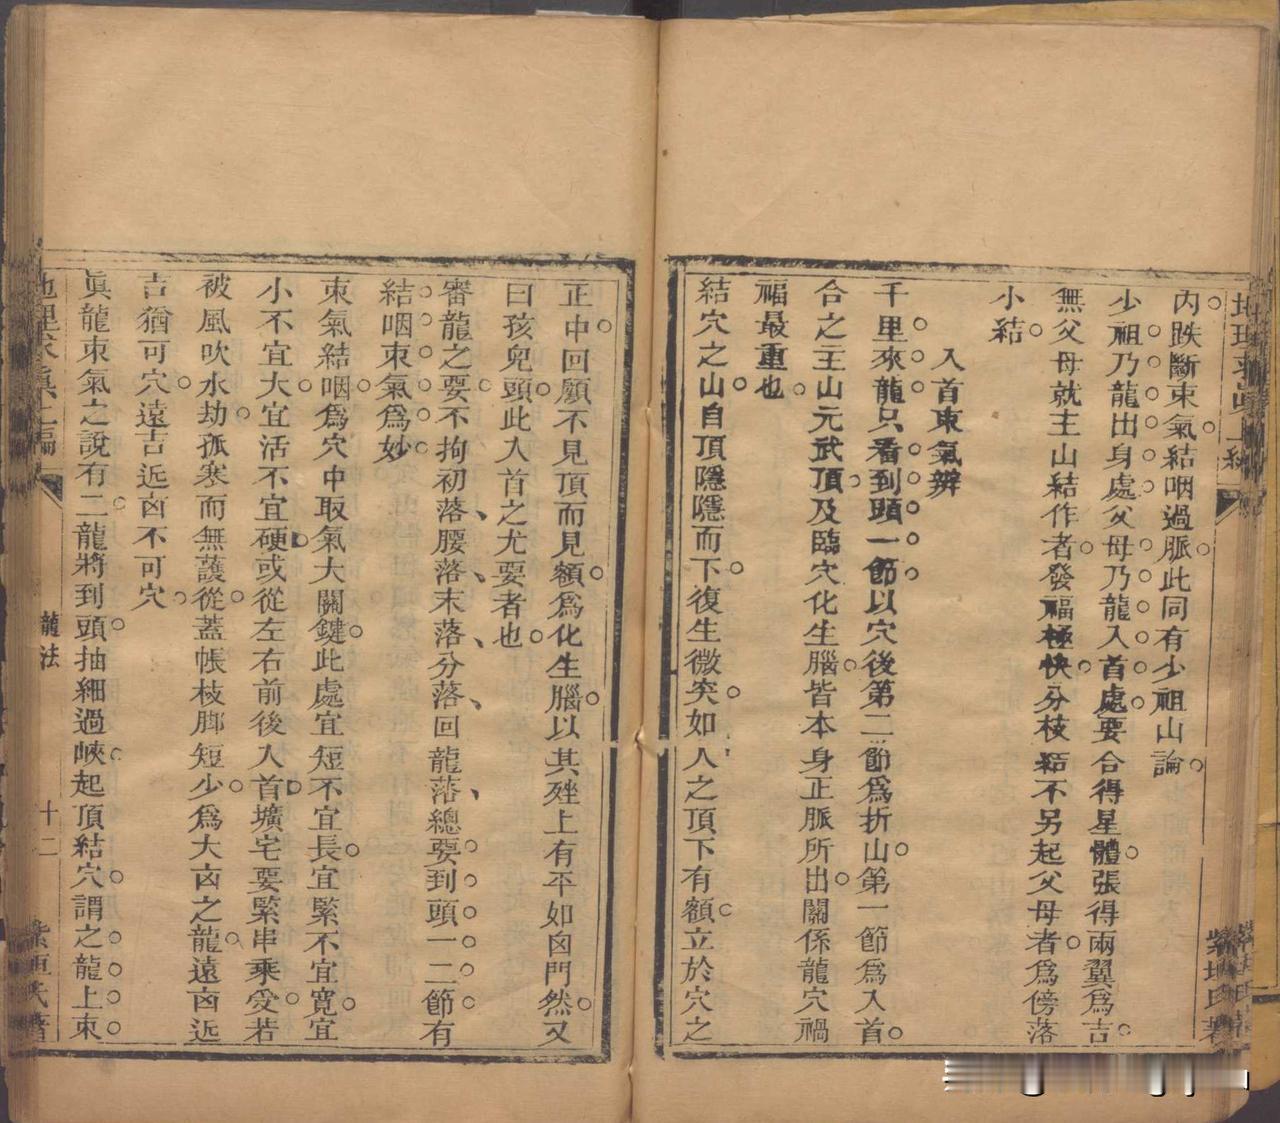 內跌斷束氣結咽過脈此同有少祖山論
少祖乃龍出身處父母乃龍入首處要合得星體張得兩翼爲吉
無父母就主山結作者發福極快分枝結不另起父母者爲傍落
小結
入首束氣辨
千里來龍只看到頭一節以穴後第二節爲折山第一節爲入首
合之主山元武頂及臨穴化生腦皆本身正脈所出關係龍穴禍
福最重也
結穴之山自頂隱隱而下復生微突如人之頂下有額立於穴之
正中回顧不見頂而見額爲化生腦以其殌上有平如囟門然又
曰孩兒頭此入首之尤要者也
審龍之要不拘初落腰落末落分落回龍落總要到頭一二節有
結咽束氣爲妙
束氣結咽爲穴中取氣大關鍵此處宜短不宜長宜緊不宜寬宜
小不宜大宜活不宜硬或從左右前後入首壙宅要緊串乘受若
被風吹水劫孤寒而無護從蓋帳枝脚短少爲大凶之龍遠凶近
吉猶可穴遠吉近凶不可穴
眞龍束氣之說有二龍將到頭抽細過峽起頂結穴謂之龍上束
地理求眞上編
龍法
十二
紫垣氏著